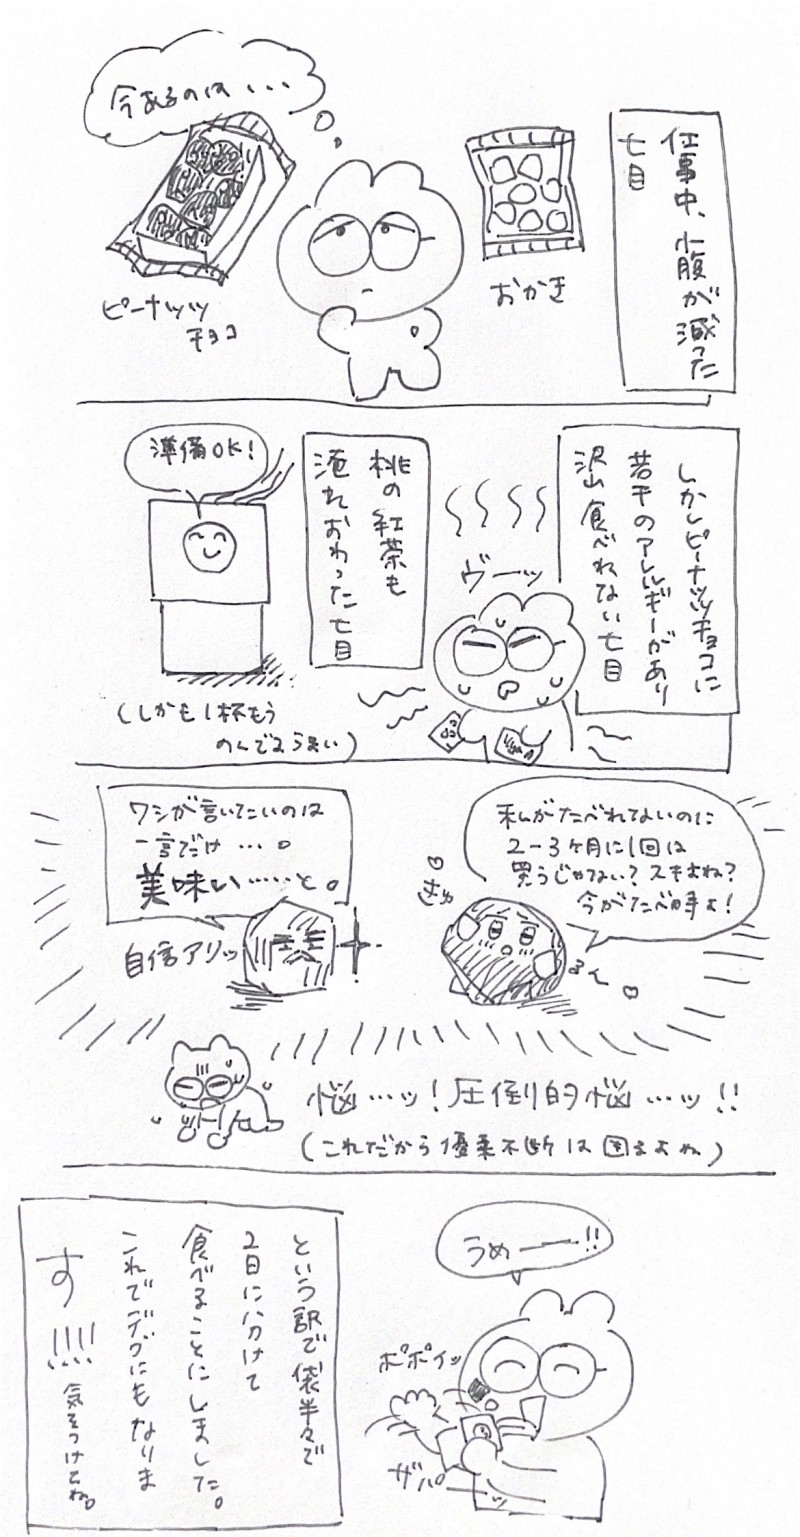 仕事中、小腹が減った
七目
おかき
今あるのは・・・
ピーナッツ
チョコ
しかしピーナッツチョコに
若干のアレルギーがあり
沢山食べれない七目
ヴーッ
桃の紅茶も
淹れおわった七目
準備OK!
(しかも1杯もう
のんでるうまい)
私がたべれてないのに
2-3ヶ月に1回は
買うじゃない?スキよね?
今がたべ時よ!
ワシが言いてぇのは
一言だけ…。
美味い……と。
自信アリッ
悩…ッ!圧倒的悩…ッ!!
(これだから優柔不断は困るよね)
うめーー!!
ポポイッ
ザパーッ
という訳で袋半々で
2日に分けて
食べることにしました。
これでデブにもなりま
す!!!!
気をつけてね。